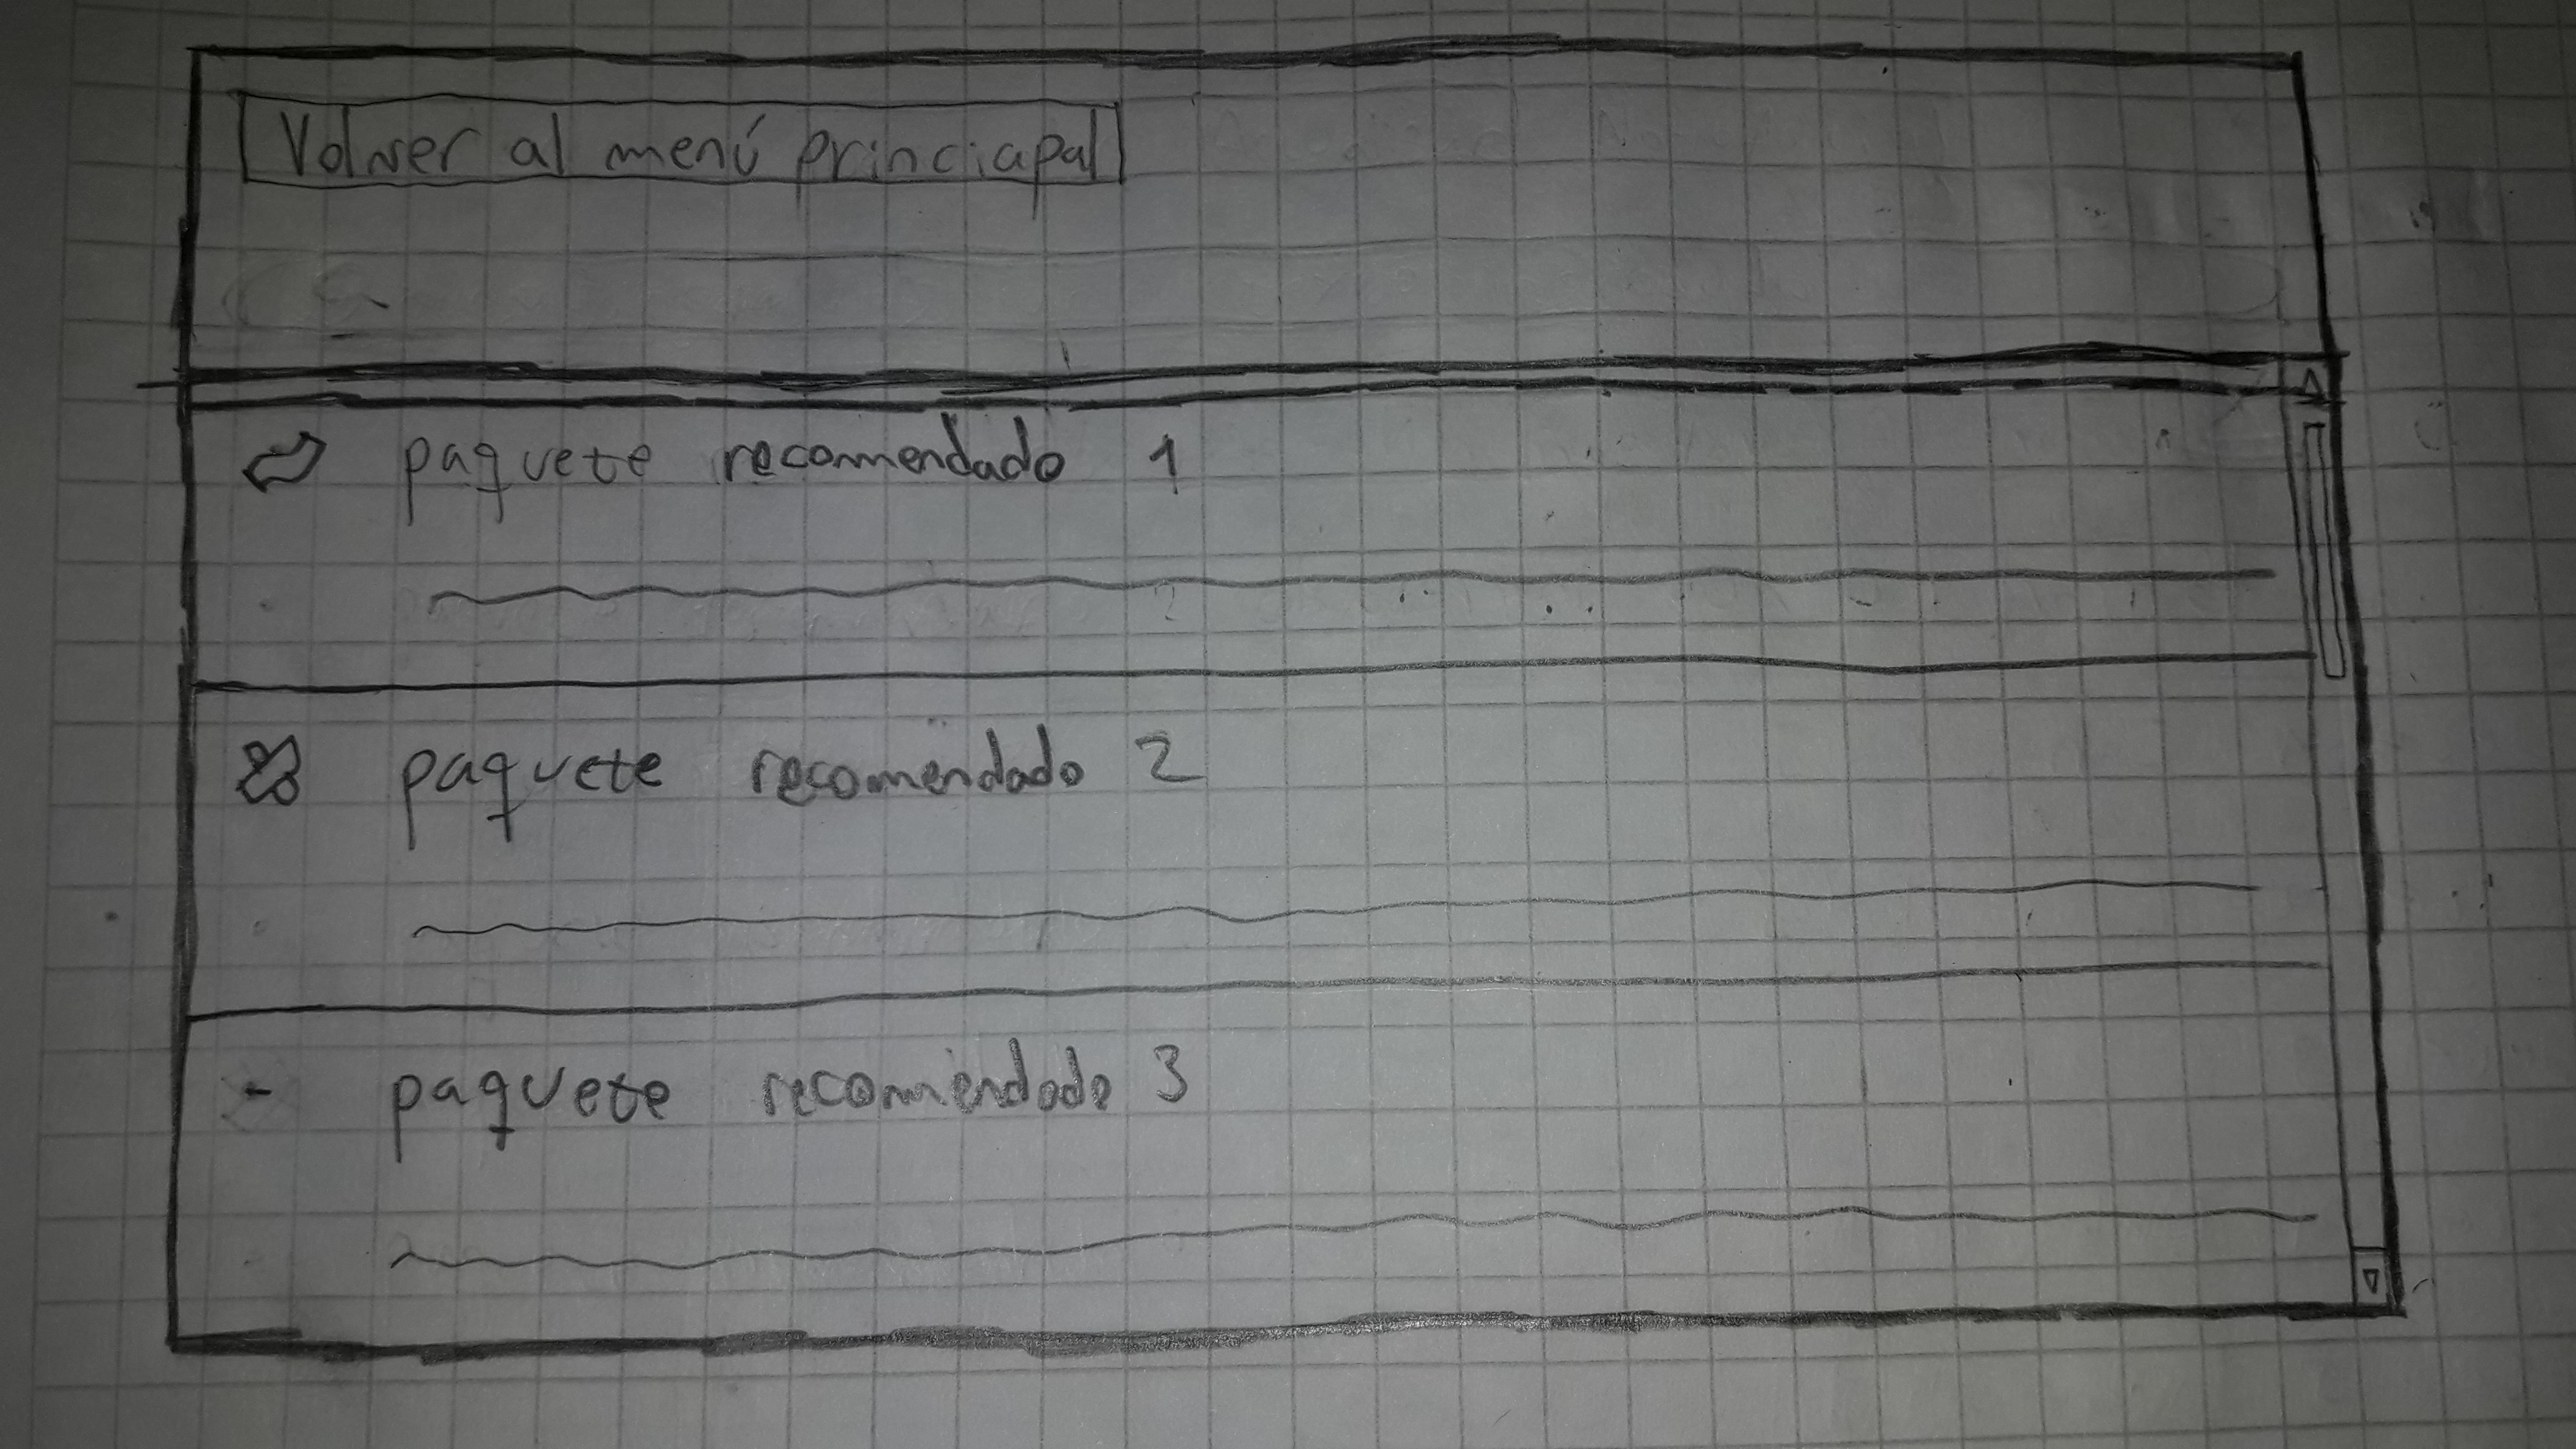 Volver al menú princiapal
paquete recomendado 1
paquete recomendado 2
- paquete recomendado 3